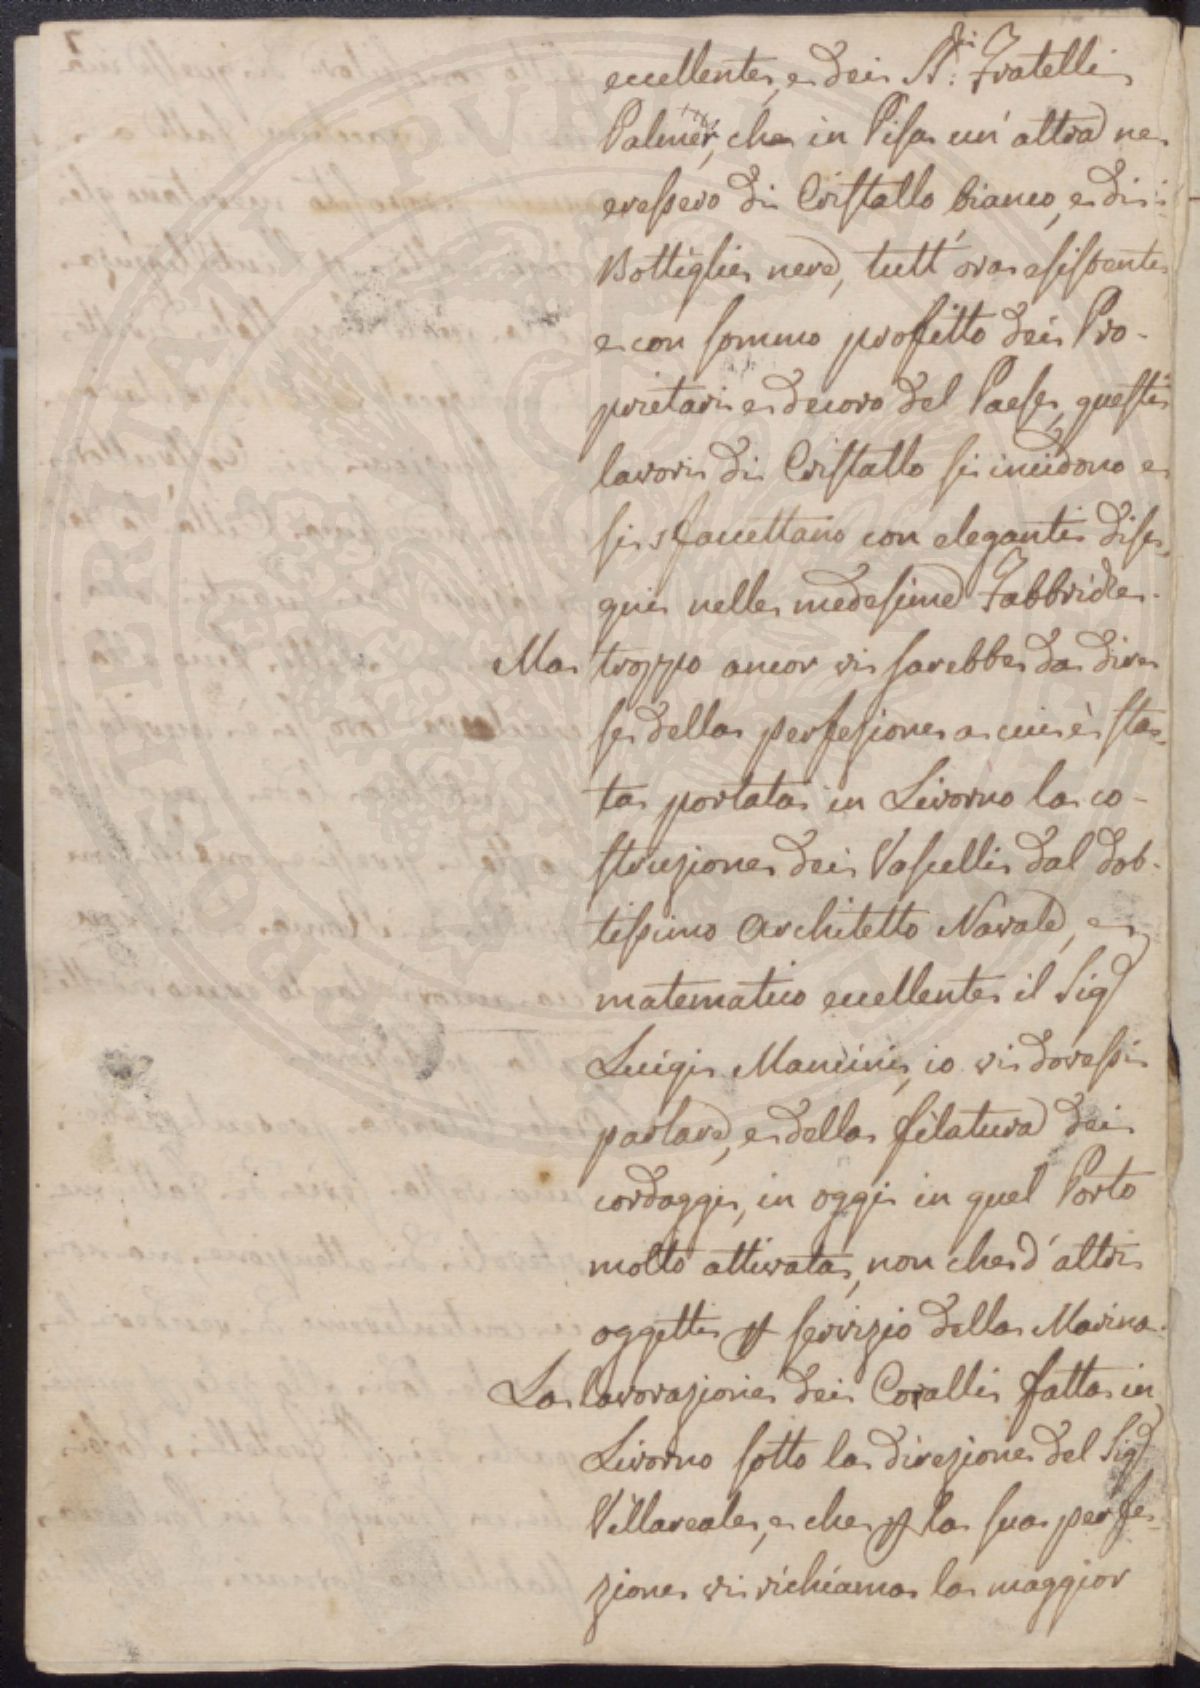 eccellente, e dei S.ri Fratelli
Palmer, che in Pisa un' altra ne
eressero di Cristallo bianco, e di
Bottiglie nere, tutt' ora esistente
e con sommo profitto dei Pro-
prietari e decoro del Paese, questi
lavori di Cristallo si incidono e
si sfaccettano con eleganti dise-
gni nelle medesime Fabbriche.
Ma troppo ancor vi sarebbe da dire
se della perfezione a cui è sta-
ta portata in Livorno la co-
struzione dei Vascelli dal dot-
tissimo Architetto Navale, e
matematico eccellente il Sig.
Luigi Mancini, io vi dovessi
parlare, e della filatura dei
cordaggi, in oggi in quel Porto
molto attivata, non che d' altri
oggetti p servizio della Marina.
La lavorazione dei Coralli fatta in
Livorno sotto la direzione del Sig.
Villareale, e che p la sua perfe-
zione vi richiama la maggior